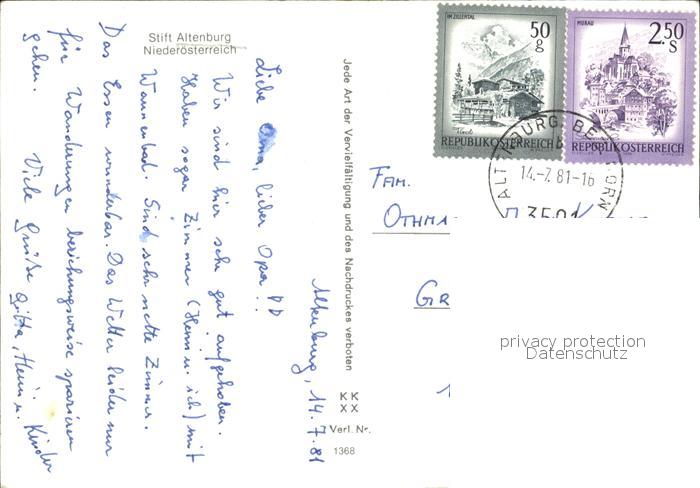 Stift Altenburg
Niederösterreich
Altenburg, 14.7.81
Liebe Oma, lieber Opa!!
Wir sind hier sehr gut aufgehoben.
Haben sogar Zimmer (Heini u. ich) mit
Wannenbad. Sind sehr nette Zimmer.
Das Essen wunderbar. Das Wetter leider nur
für Wanderungen beziehungsweise spazieren
gehen. Viele Grüße Gitta, Heini u. Kinder
Jede Art der Vervielfältigung und des Nachdruckes verboten
KK
XX
Verl. Nr.
1368
IM ZILLERTAL
50
g
Tirol
REPUBLIK ÖSTERREICH
MURAU
2.50
S
REPUBLIK ÖSTERREICH
ALTENBURG BEI HORN
b
14.-7.81-16
3591
FAM.
OTHMA
GR
1
privacy protection
Datenschutz